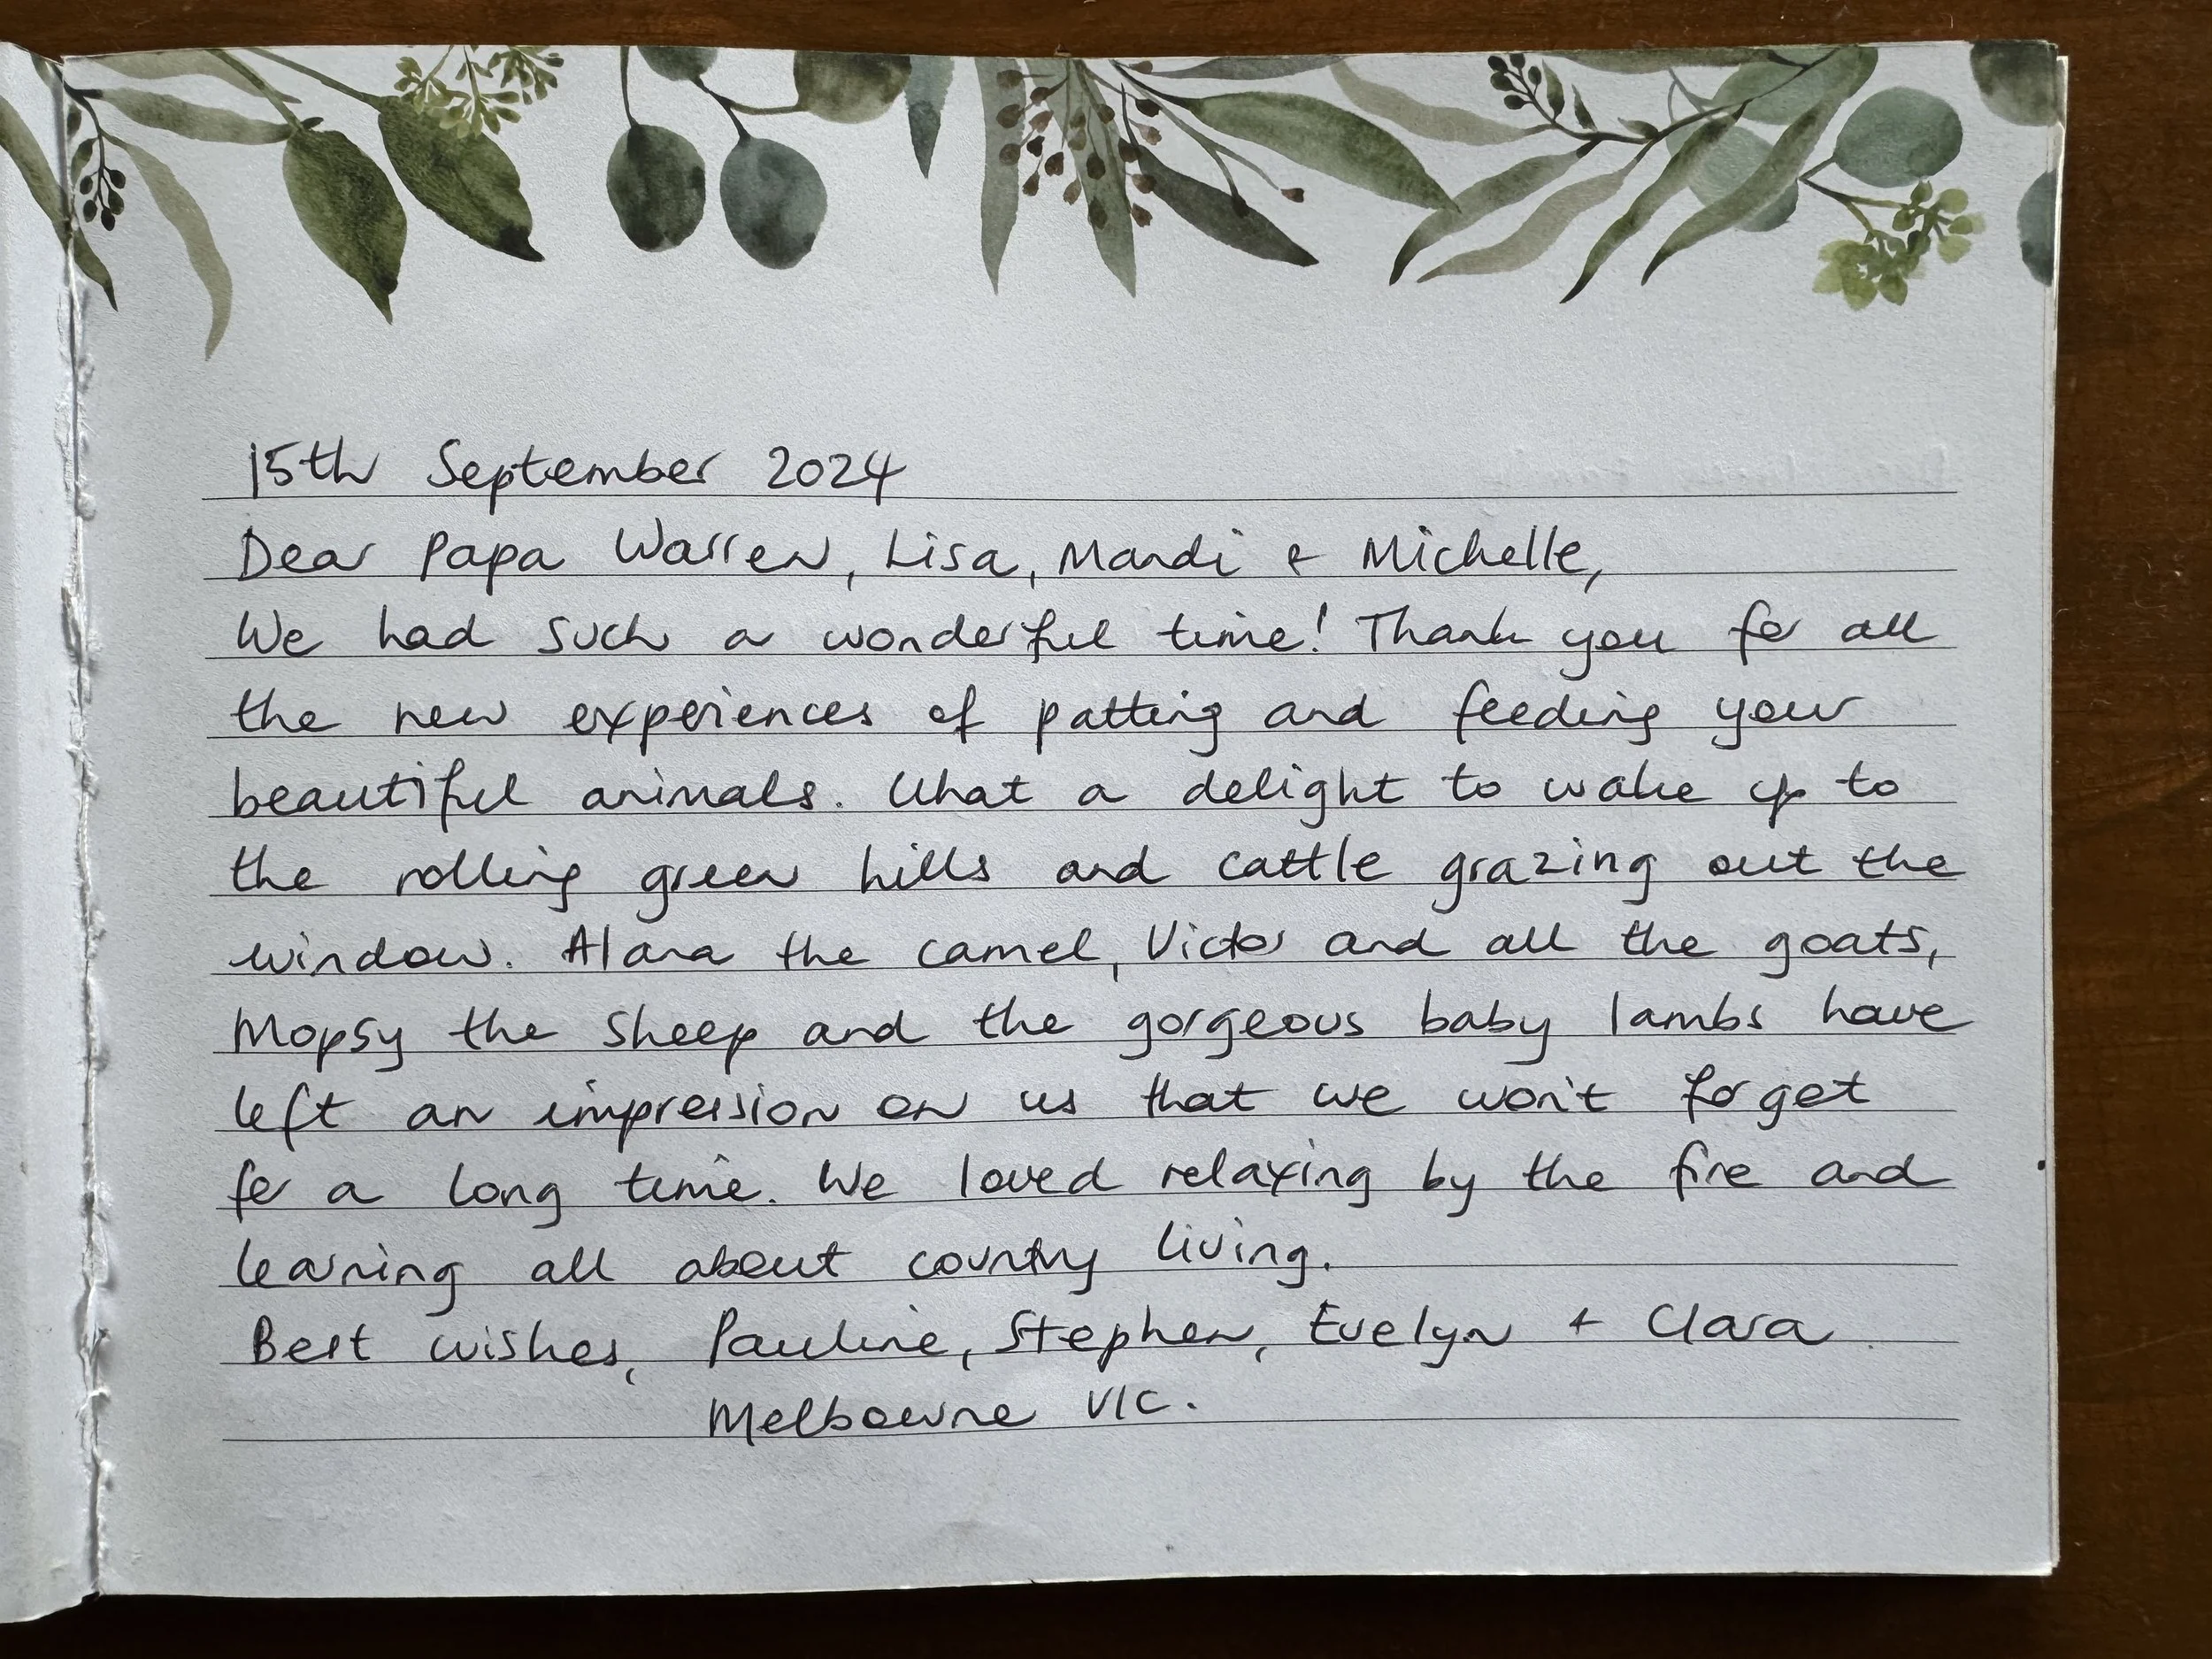 15th September 2024
Dear Papa Warren, Lisa, Mandi & Michelle,
We had such a wonderful time! Thank you for all
the new experiences of patting and feeding your
beautiful animals. What a delight to wake up to
the rolling green hills and cattle grazing out the
window. Alana the camel, Victor and all the goats,
Mopsy the sheep and the gorgeous baby lambs have
left an impression on us that we won't forget
for a long time. We loved relaxing by the fire and
learning all about country living.
Best wishes, Pauline, Stephen, Evelyn + Clara
Melbourne VIC.